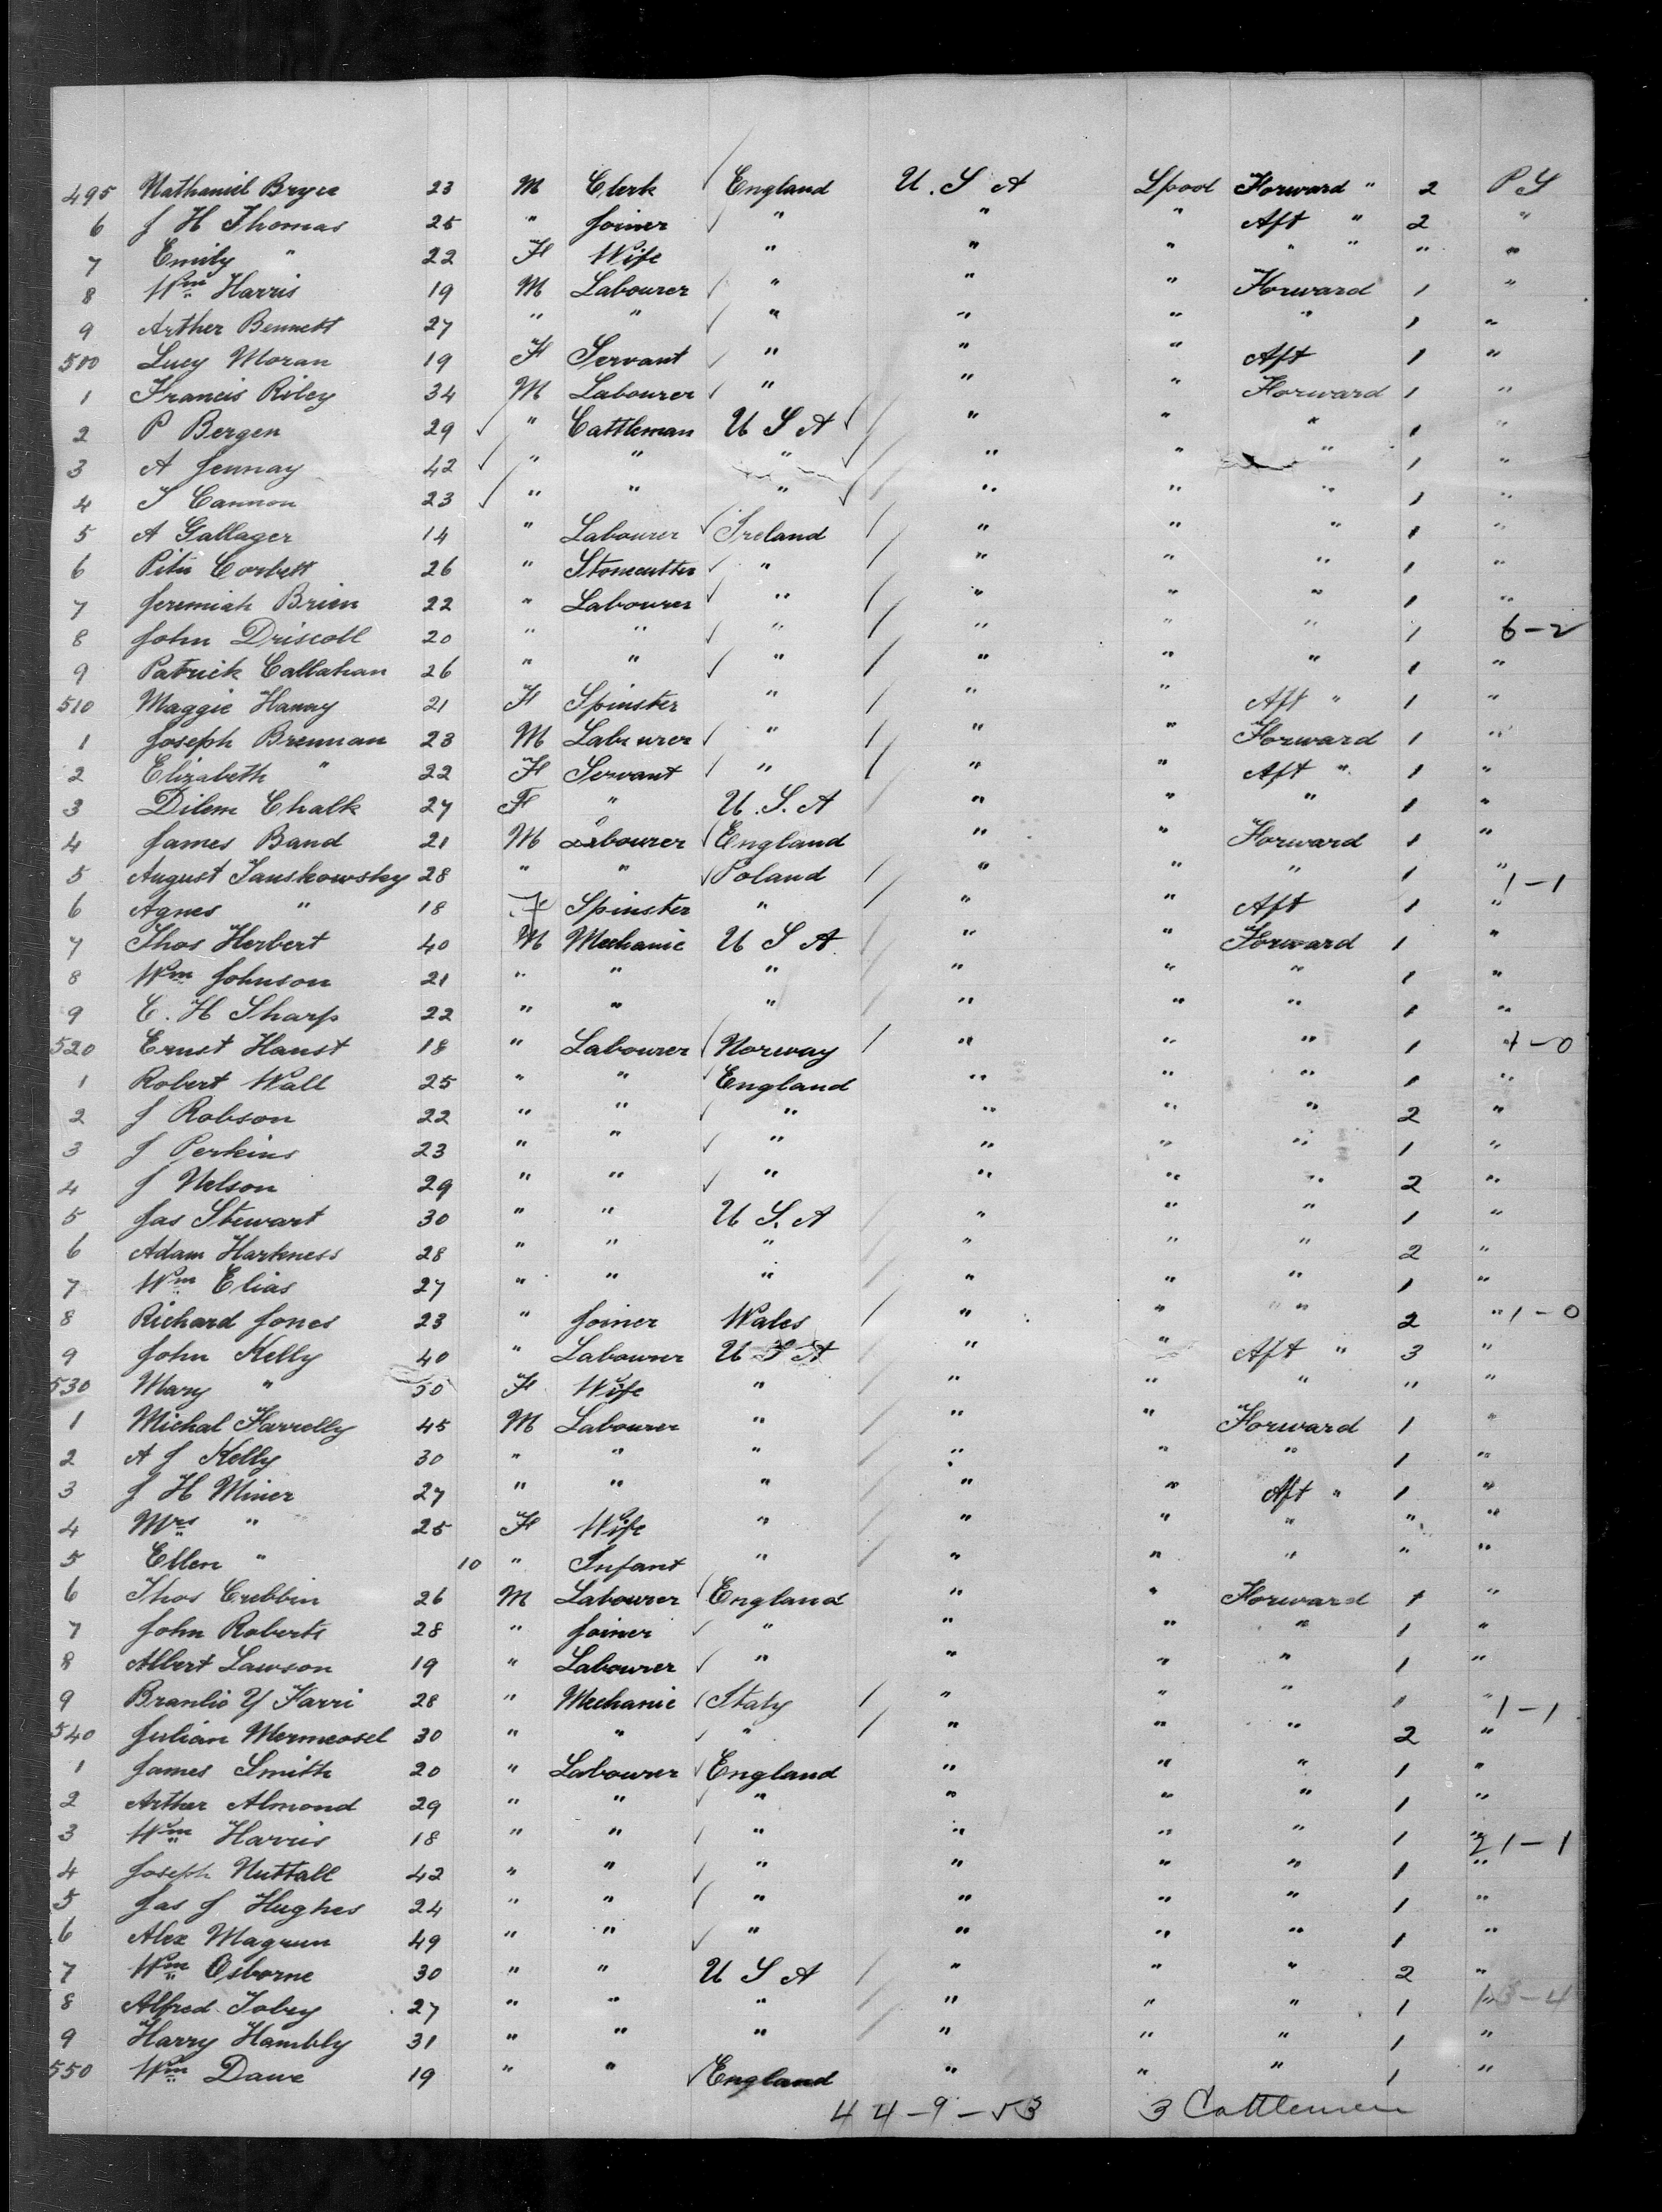 495 Nathaniel Bryce 23 M Clerk England U.S A Lpool Forward " 2 P S
6 J H Thomas 25 " Joiner " " " Aft " 2 "
7 Emily " 22 F Wife " " " " " " "
8 Wm Harris 19 M Labourer " " " Forward 1 "
9 Arther Bennett 27 " " " " " " 1 "
500 Lucy Moran 19 F Servant " " " Aft 1 "
1 Francis Riley 34 M Labourer " " " Forward 1 "
2 P Bergen 29 " Cattleman U S A " " " 1 "
3 A Jennay 42 " " " " " " 1 "
4 T Cannon 23 " " " " " " 1 "
5 A Gallager 14 " Labourer Ireland " " " 1 "
6 Peter Corbett 26 " Stonecutter " " " " 1 "
7 Jeremiah Brien 22 " Labourer " " " " 1 "
8 John Driscoll 20 " " " " " " 1 6-2
9 Patrick Callahan 26 " " " " " " 1 "
510 Maggie Hanay 21 F Spinster " " " Aft " 1 "
1 Joseph Brennan 23 M Labourer " " " Forward 1 "
2 Elizabeth " 22 F Servant " " " Aft " 1 "
3 Dilem Chalk 27 F " U.S.A " " " 1 "
4 James Band 21 M Labourer England " " Forward 1 "
5 August Janskowsky 28 " " Poland " " " 1 " 1-1
6 Agnes " 18 F Spinster " " " Aft 1 "
7 Thos Herbert 40 M Mechanic U S A " " Forward 1 "
8 Wm Johnson 21 " " " " " " 1 "
9 C. H Sharp 22 " " " " " " 1 "
520 Ernst Hanst 18 " Labourer Norway " " " 1 " 1-0
1 Robert Wall 25 " " England " " " 1 "
2 J Robson 22 " " " " " " 2 "
3 J Perkins 23 " " " " " " 1 "
4 J Nelson 29 " " " " " " 2 "
5 Jas Stewart 30 " " U S. A " " " 1 "
6 Adam Harkness 28 " " " " " " 2 "
7 Wm Elias 27 " " " " " " 1 "
8 Richard Jones 23 " Joiner Wales " " " 2 " 1-0
9 John Kelly 40 " Labourer U S A " " Aft " 3 "
530 Mary " 50 F Wife " " " " " "
1 Michal Farrelly 45 M Labourer " " " Forward 1 "
2 A J Kelly 30 " " " " " " 1 "
3 J H Miner 27 " " " " " Aft " 1 "
4 Mrs " 25 F Wife " " " " " "
5 Ellen " 10 " Infant " " " " " "
6 Thos Crebbin 26 M Labourer England " " Forward 1 "
7 John Roberts 28 " Joiner " " " " 1 "
8 Albert Lawson 19 " Labourer " " " " 1 "
9 Branlio Y Farri 28 " Mechanic Italy " " " 1 " 1-1
540 Julian Mermeosel 30 " " " " " " 2 "
1 James Smith 20 " Labourer England " " " 1 "
2 Arther Almond 29 " " " " " " 1 "
3 Wm Harris 18 " " " " " " 1 " 21-1
4 Joseph Nuttall 42 " " " " " " 1 "
5 Jas J Hughes 24 " " " " " " 1 "
6 Alex Magrun 49 " " " " " " 1 "
7 Wm Osborne 30 " " U S A " " " 2 "
8 Alfred Tobey 27 " " " " " " 1 "
9 Harry Hambly 31 " " " " " " 1 "
550 Wm Dawe 19 " " England " " " 1 "
44-9-53 3 Cattlemen